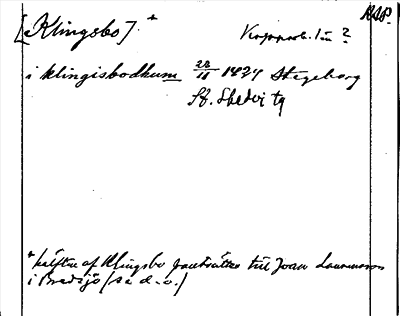 RAP.
[Klingsbo] *
Kopparb. län ?
i klingisbodhum 28/11 1424 Stegeborg
St. Skedvi
* hälften af Klingsbo pantsättes till Joan Laurensson
i Bredsjö (se d. o.)